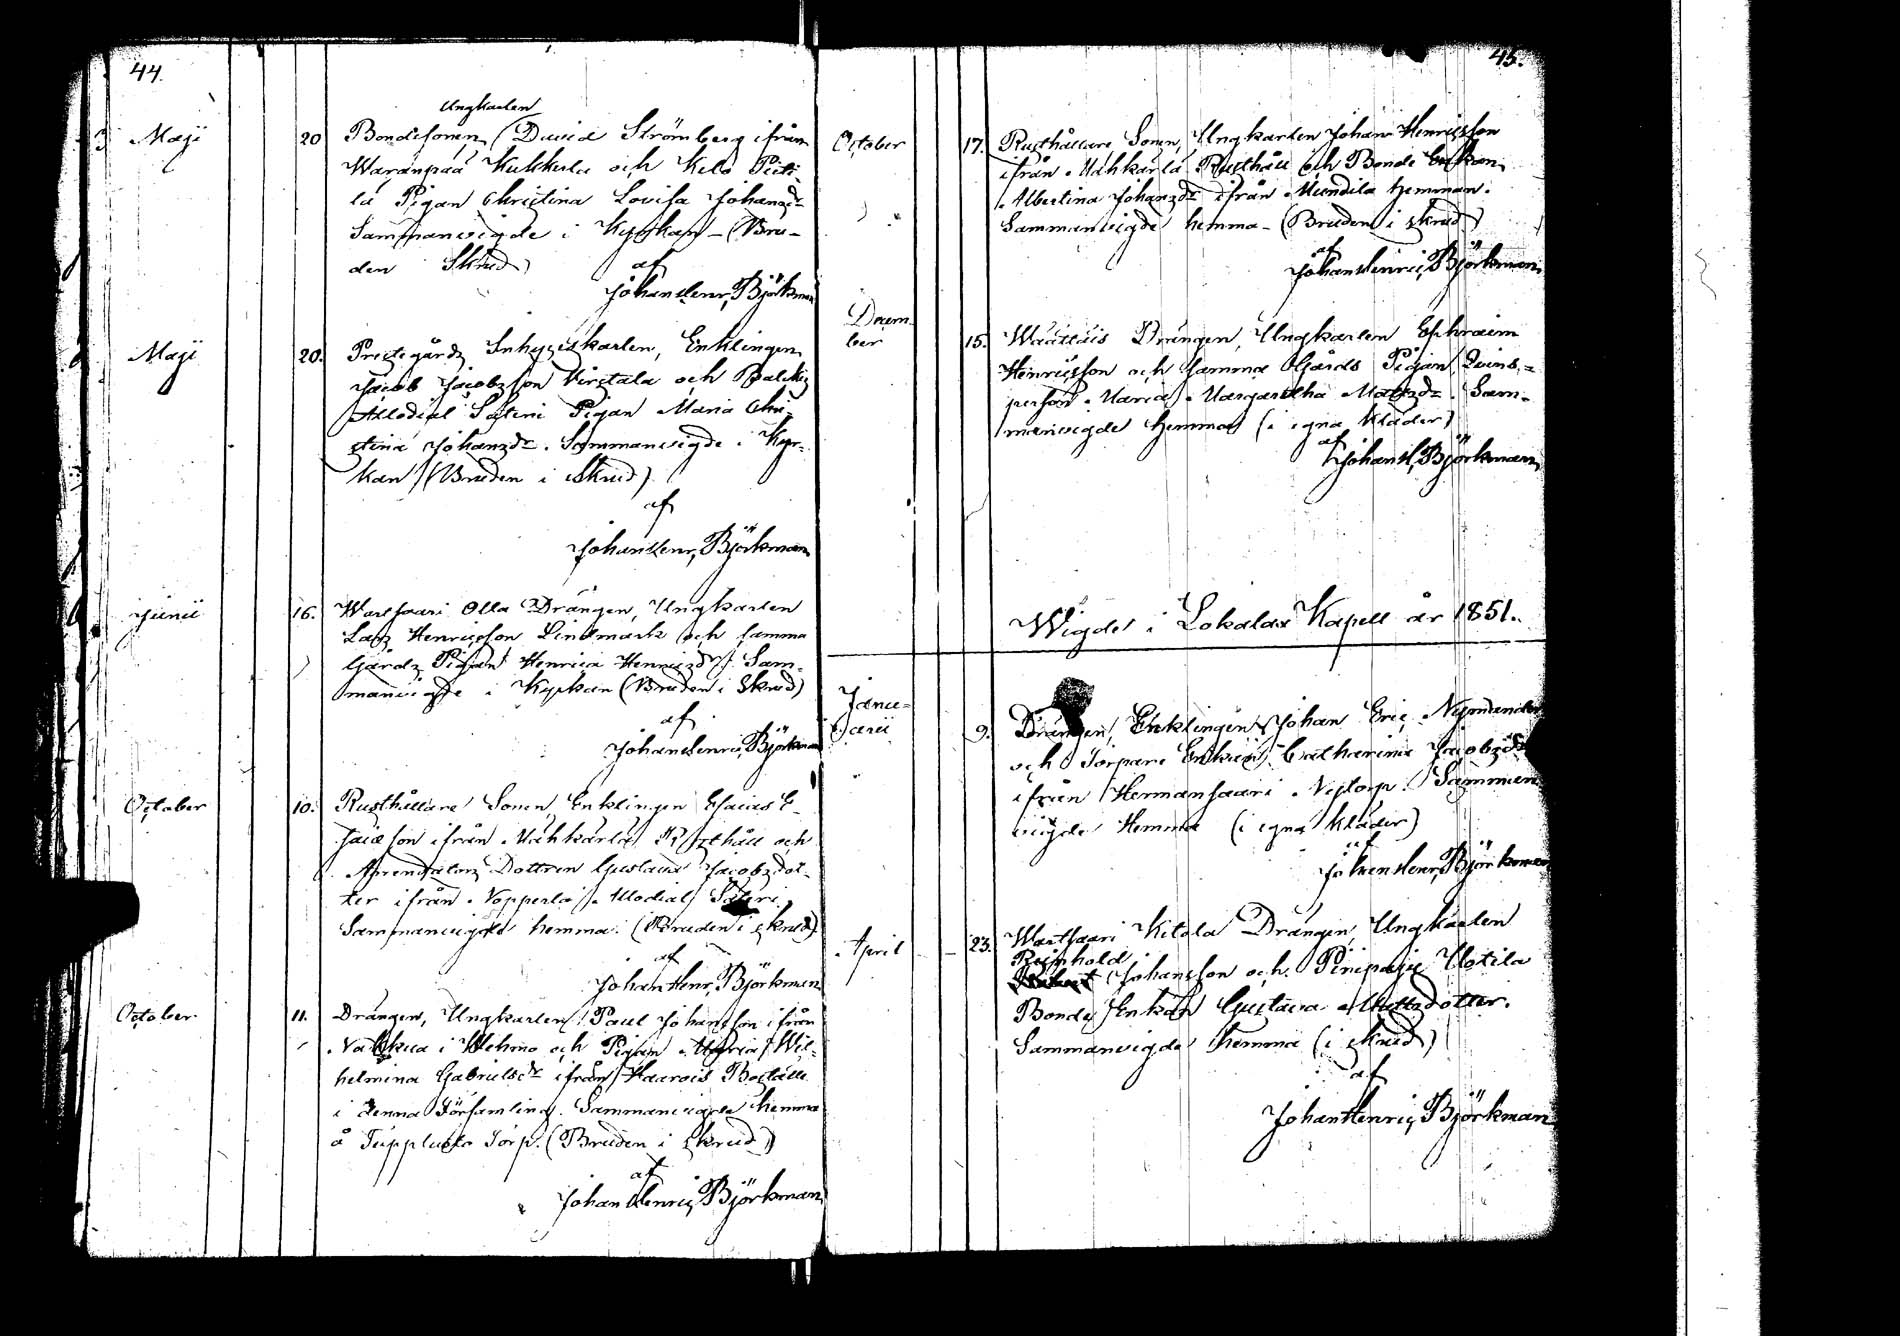 44.
Ungkarlen
Maji 20 Bondesonen David Strömberg ifrån
Waranpää Kukkerla och Kelo Pieti-
lä Pigan Christina Lovisa Johansdr
Sammanvigde i Kyrkan - (Bru-
den Skrud)
af
Johan Henr, Björkman
Maji 20. Prestegårds Inhyseskarlen, Enklingen
Jacob Jacobsson Virstala och
Allodial Säteri Pigan Maria Chri-
stina Johansdr. Sammanvigde i Kyr-
kan (Bruden i Skrud)
af
Johan Henr, Björkman
Junii 16. Wartsaari Olla Drängen, Ungkarlen
Lars Henricsson Lindmark och samma
Gårds Pigan Henrica Henricsdr. Sam-
manvigde i Kyrkan (Bruden i Skrud)
af
Johan Henric, Björkman
October 10. Rusthållare Sonen Enklingen Esaias E-
saiæson ifrån Nähkärlä Rusthåll och
Arrendators Dottren Gustava Jacobsdot-
ter ifrån Nopperla Allodial Säteri
Sammanvigde hemma. (Bruden i skrud)
af
Johan Henr, Björkman
October 11. Drängen, Ungkarlen Paul Johansson ifrån
i Wehmo och Pigan Maria Wil-
helmina Gabrielsdr ifrån Haarois Boställe
i denna Församling. Sammanvigde hemma
å Torp. (Bruden i skrud)
af
Johan Henric, Björkman
45.
October 17. Rusthållare Sonen, Ungkarlen Johan Henricsson
ifrån Nähkärlä Rusthåll och Bonde Enkan
Albertina Johansdr ifrån Mundila hemman.
Sammanvigde hemma - (Bruden i skrud)
af
Johan Henric, Björkman
Decem-
ber 15. Drängen, Ungkarlen Ephraim
Henricsson och samma Gårds Pigan, Qvins-
person Maria Margaretha Matsdr. Sam-
manvigde hemma (i egna kläder)
af
Johan H, Björkman
Wigde i Lokalax Kapell år 1851.
Janu-
arii 9. Drängen, Enklingen Johan Eric Nymander
och Torpare Enkan Catharina Jacobsdr
ifrån Hermansaari Nytorp. Samman
vigde Hemma (i egna kläder)
af
Johan Henr, Björkman
April 23. Wartsaari Kitola Drängen, Ungkarlen
Reinhold
Johansson och Pinipaju Uotila
Bonde Enkan Gustava Mattsdotter.
Sammanvigde hemma (i skrud)
af
Johan Henric, Björkman